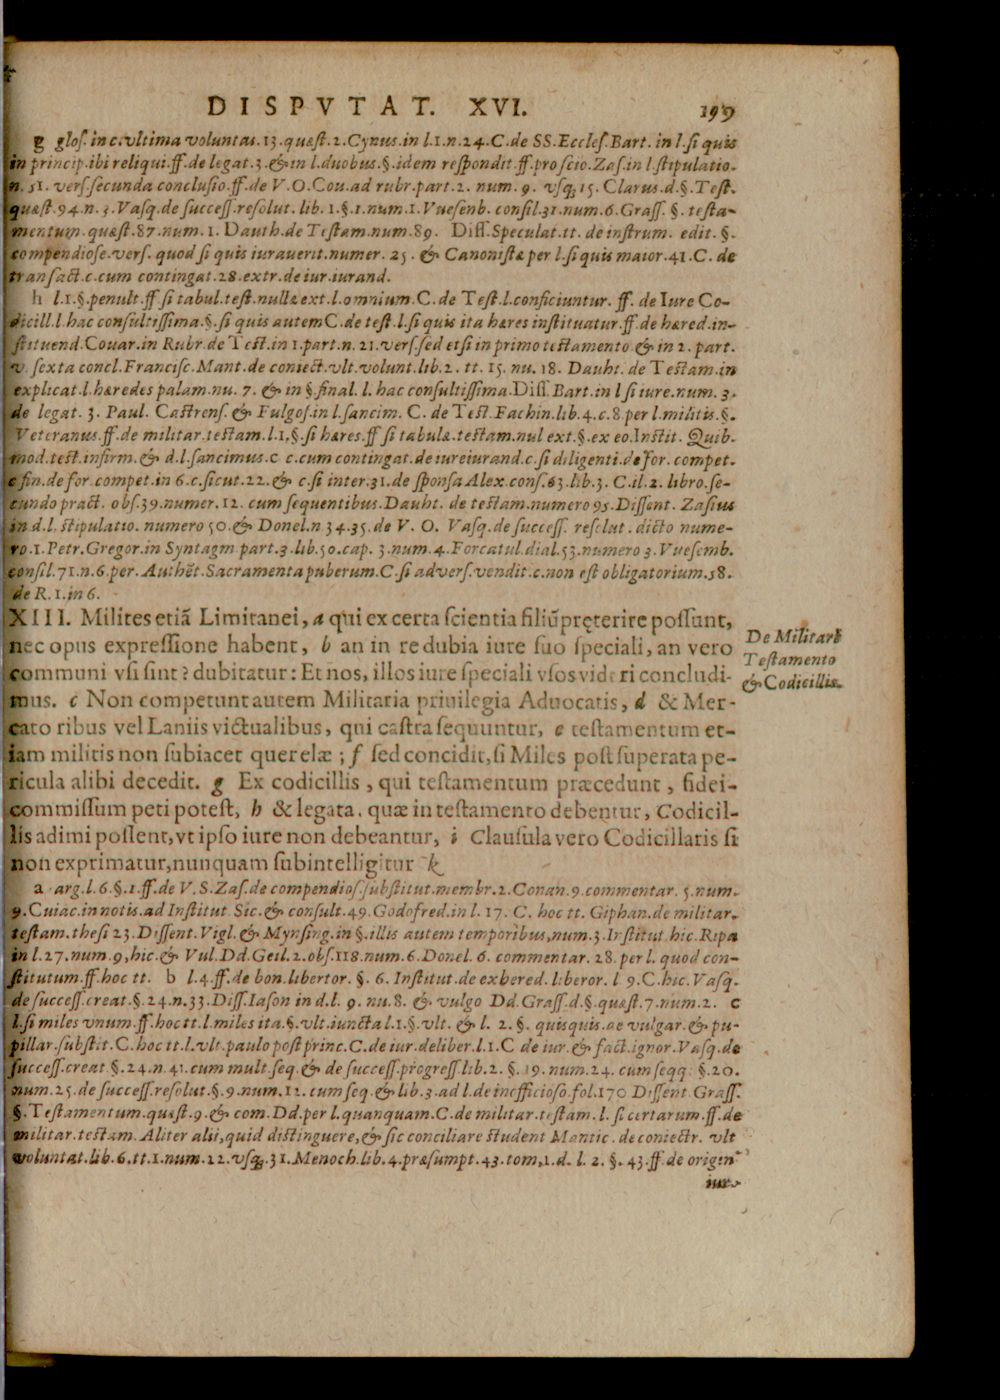 DISPVTAT. XVI. 199
g glos. in c. vltima voluntas. 13. quæst. 2. Cynus. in l. 1. n. 24. C. de SS. Eccles. Bart. in l. si quis
in princip. ibi reliqui. ff. de legat. 3. & in l. duobus. §. idem respondit. ff. pro scio. Zas. in l. stipulatio.
n. 51. vers. secunda conclusio. ff. de V. O. Cou. ad rubr. part. 2. num. 9. vsq; 15. Clarus. d. §. Test.
quæst. 94. n. 3. Vasq. de success. resolut. lib. 1. §. 1. num. 1. Vuesenb. consil. 31. num. 6. Grass. §. testa-
mentum. quæst. 87. num. 1. Dauth. de Testam. num. 89. Diss. Speculat. tt. de instrum. edit. §.
compendiose. vers. quod si quis iurauerit. numer. 25. & Canonistæ per l. si quis maior. 41. C. de
transact. c. cum contingat. 28. extr. de iur. iurand.
h l. 1. §. penult. ff. si tabul. test. nullæ ext. l. omnium. C. de Test. l. conficiuntur. ff. de Iure Co-
dicill. l. hac consultissima. §. si quis autem C. de test. l. si quis ita hæres instituatur. ff. de hæred. in-
stituend. Couar. in Rubr. de Test. in 1. part. n. 21. vers. sed etsi in primo testamento & in 2. part.
v. sexta concl. Francisc. Mant. de coniect. vlt. volunt. lib. 2. tt. 15. nu. 18. Dauht. de Testam. in
explicat. l. hæredes palam. nu. 7. & in §. final. l. hac consultissima. Diss. Bart. in l si iure. num. 3.
de legat. 3. Paul. Castrens. & Fulgos. in l. sancim. C. de Test. Fachin. lib. 4. c. 8 per l. militis. §.
Veteranus. ff. de militar. testam. l. 1, §. si hæres. ff si tabulæ. testam. nul ext. §. ex eo. Instit. Quib.
mod. test. infirm. & d. l. sancimus. C c. cum contingat. de iureiurand. c. si diligenti. de for. compet.
c fin. de for. compet. in 6. c. sicut. 22. & c. si inter. 31. de sponsa Alex. cons. 63. lib. 3. C. il. 2. libro. se-
cundo pract. obs. 39. numer. 12. cum sequentibus. Dauht. de testam. numero 95. Dissent. Zasius
in d. l. stipulatio. numero 50. & Donel. n 34. 35. de V. O. Vasq. de success. resolut. dicto nume-
ro. 1. Petr. Gregor. in Syntagm part. 3. lib. 50. cap. 3. num. 4. Forcatul. dial. 53. numero 3. Vuesemb.
consil. 71. n. 6. per. Authēt. Sacramenta puberum. C. si aduers. vendit. c. non est obligatorium. 58.
de R. 1. in 6.
XIII. Milites etiā Limitanei, a qui ex certa scientia filiū pręterire possunt,
nec opus expressione habent, b an in re dubia iure suo speciali, an vero
communi vsi sint? dubitatur: Et nos, illos iure speciali vsos videri concludi-
mus. c Non competunt autem Militaria priuilegia Aduocatis, d & Mer-
cato ribus vel Laniis victualibus, qui castra sequuntur, e testamentum et-
iam militis non subiacet querelæ; f sed concidit, si Miles post superata pe-
ricula alibi decedit. g Ex codicillis, qui testamentum præcedunt, fidei-
commissum peti potest, h & legata. quæ in testamento debentur, Codicil-
lis adimi possent, vt ipso iure non debeantur, i Clausula vero Codicillaris si
non exprimatur, nunquam subintelligitur k
De Militari
Testamento
& Codicillis.
a arg. l. 6. §. 1. ff. de V. S. Zas. de compendios. substitut. membr. 2. Conan. 9. commentar. 5. num.
9. Cuiac. in notis. ad Institut Sic. & consult. 49. Godofred. in l. 17. C. hoc tt. Giphan. de militar.
testam. thesi 23. Dissent. Vigl. & Mynsing. in §. illis autem temporibus, num. 3. Institut hic. Ripa
in l. 27. num. 9, hic. & Vul. Dd. Geil. 2. obs. 118. num. 6. Donel. 6. commentar. 28. per l. quod con-
stitutum. ff. hoc tt. b l. 4. ff. de bon. libertor. §. 6. Institut. de exhered. liberor. l 9. C. hic. Vasq.
de success. creat. §. 24. n. 33. Diss. Iason in d. l. 9. nu. 8. & vulgo Dd. Grass. d. §. quæst. 7. num. 2. c
l. si miles vnum. ff. hoc tt. l. miles ita. §. vlt. iuncta l. 1. §. vlt. & l. 2. §. quisquis. de vulgar. & pu-
pillar. substit. C. hoc tt. l. vlt. paulo post princ. C. de iur. deliber. l. 1. C de iur. & fact. ignor. Vasq. de
success. creat §. 24. n. 41. cum mult. seq. & de success. progress. lib. 2. §. 19. num. 24. cum seqq. §. 20.
num. 25. de success. resolut. §. 9. num. 12. cum seq. & lib. 3. ad l. de inofficioso. fol. 170 Dissent. Grass.
§. Testamentum. quæst. 9. & com. Dd. per l. quanquam. C. de militar. testam. l. si certarum. ff. de
militar. testam. Aliter alii, quid distinguere, & sic conciliare student Mantic. de coniectr. vlt
voluntat. lib. 6. tt. 1. num. 22. vsq; 31. Menoch. lib. 4. præsumpt. 43. tom, 1. d. l. 2. §. 43. ff. de origin
iur.